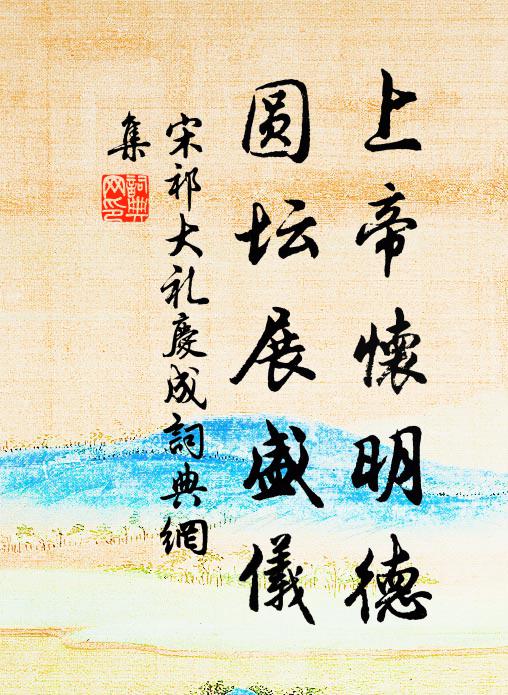 上帝懷明德
圆坛展盛儀
宋祁大礼慶成詞典網
集
詞典网印